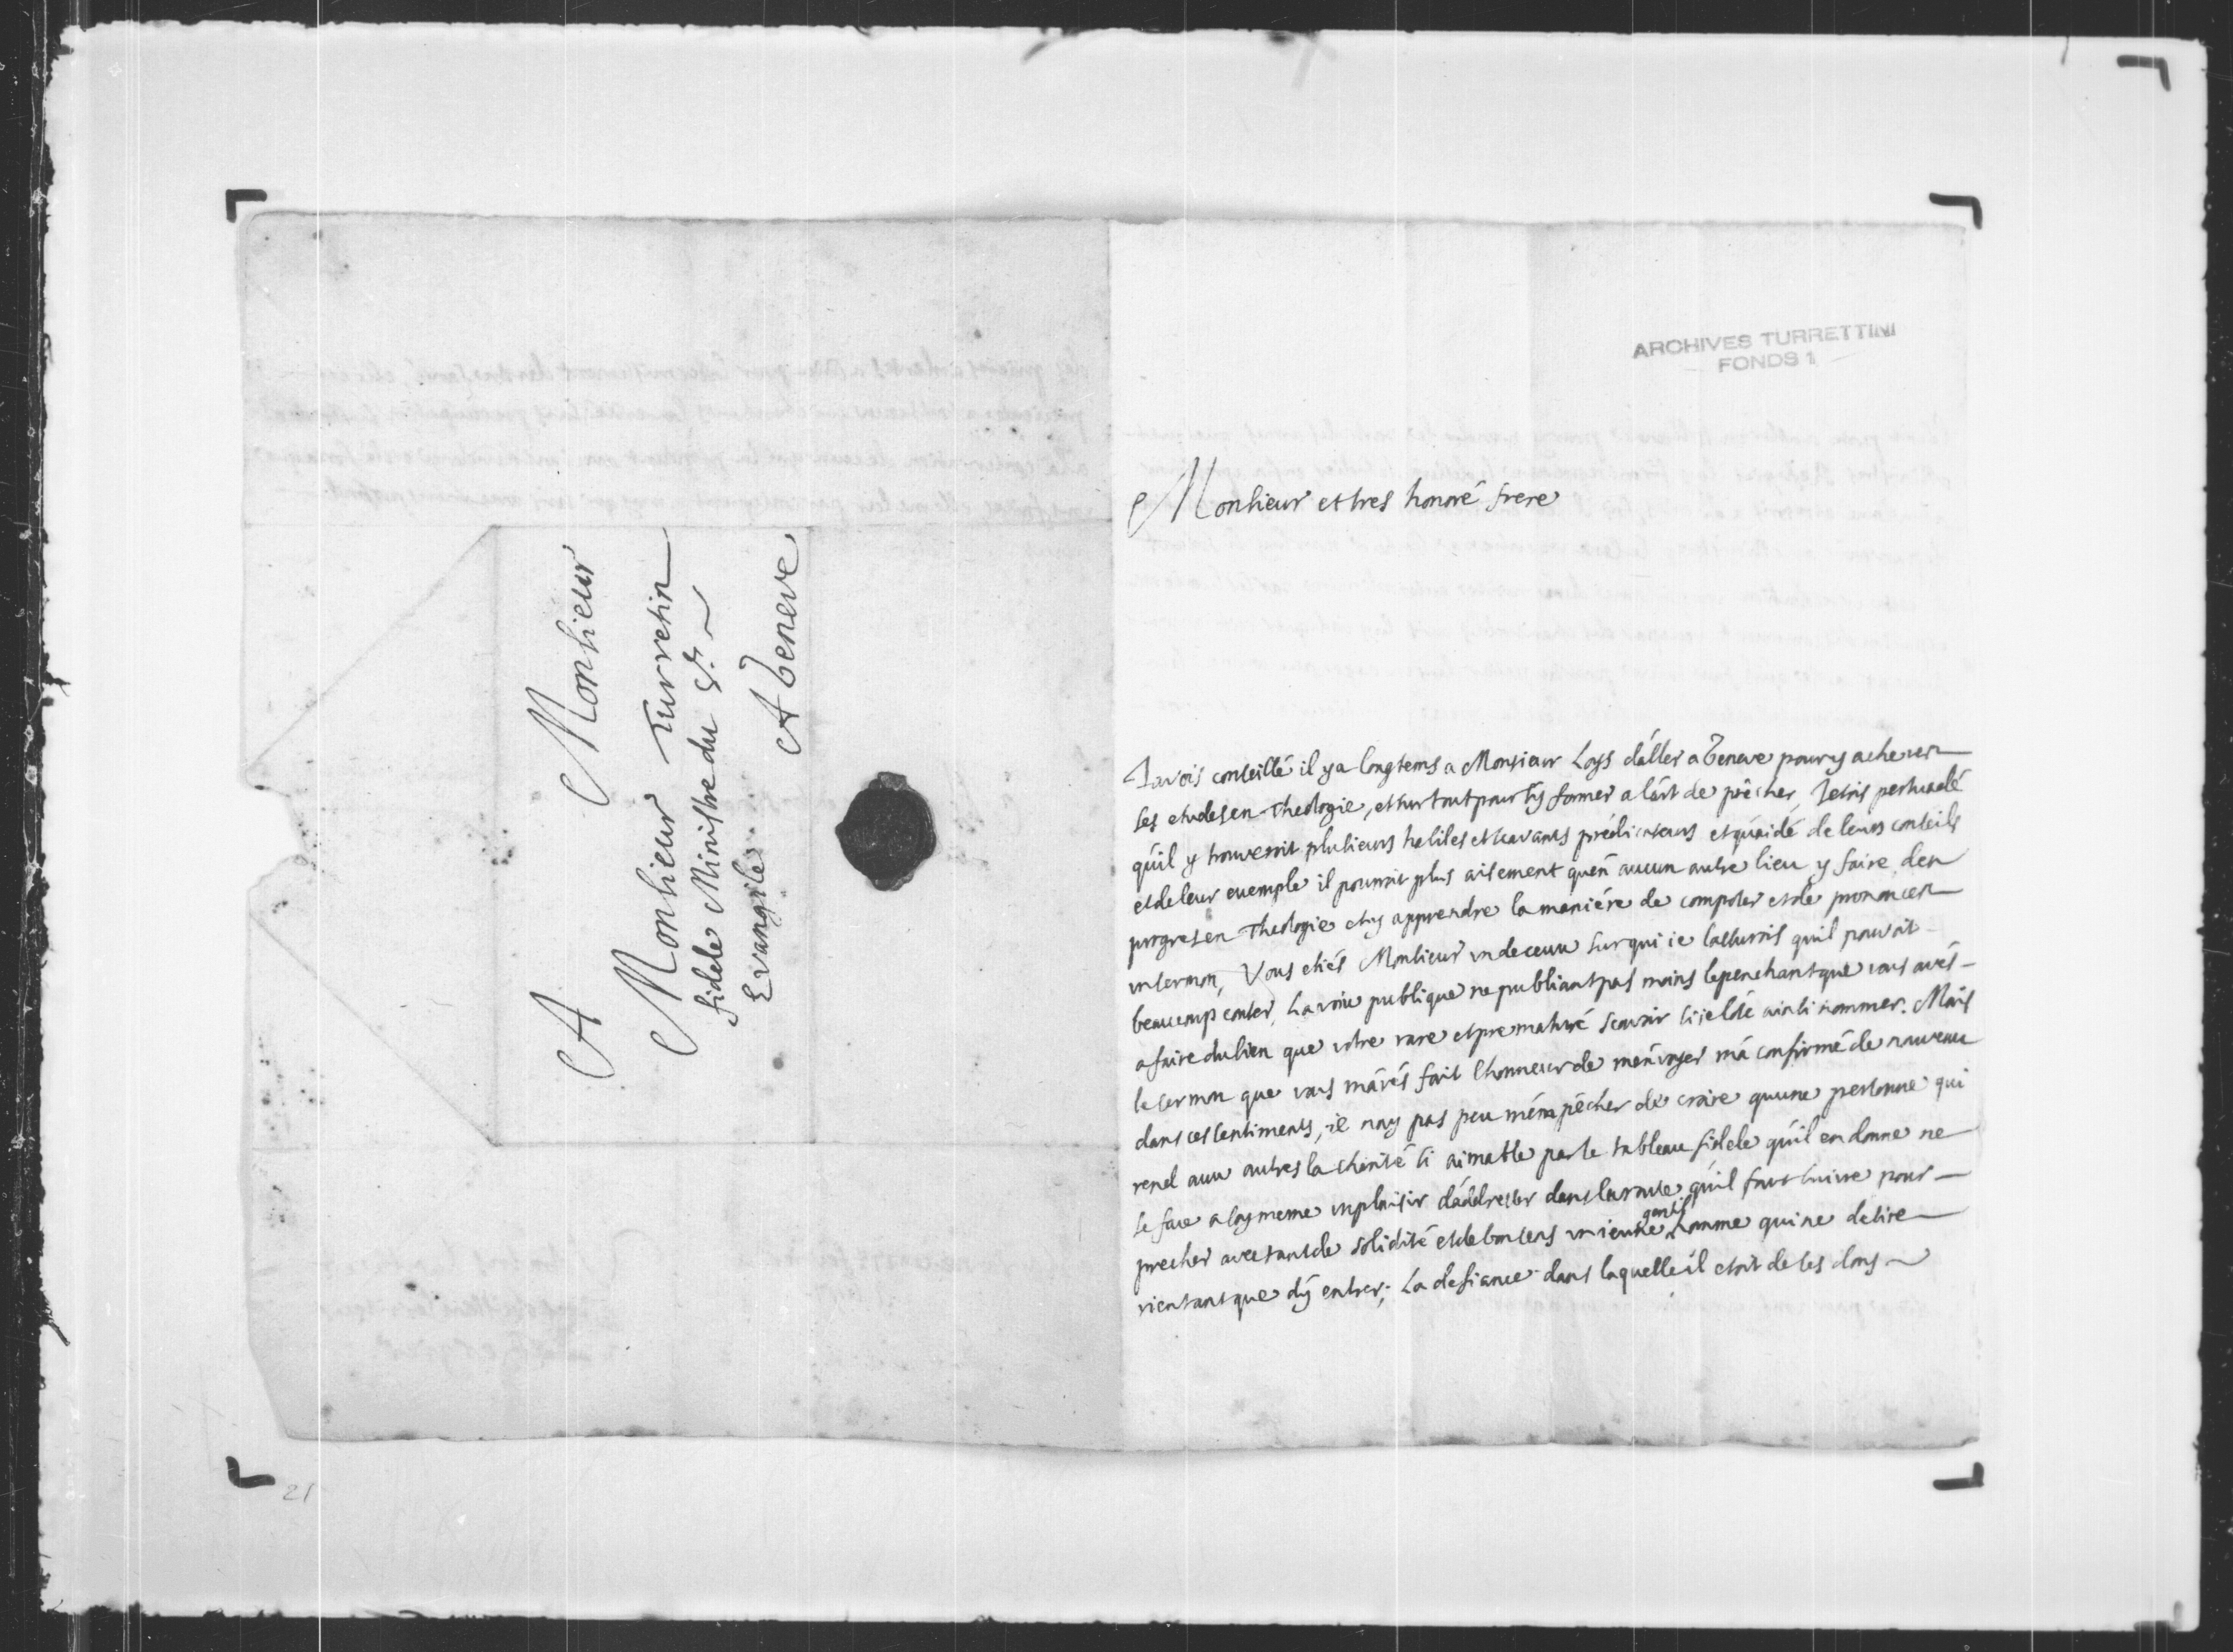 A Monsieur
Monsieur Turretin
fidele Ministre du St.
Evangile
A Geneve
ARCHIVES TURRETTINI
FONDS 1
Monsieur et tres honoré frere
Javois conseillé il y a longtems a Monsieur Loys d'aller a Geneve pour y achever
ses etudes en Theologie, et surtout pour s'y former a l'art de prêcher, Jetois persuadé
qu'il y trouveroit plusieurs habiles et scavants prédicateurs et qu'aidé de leurs conseils
et de leur exemple il pourroit plus aisement qu'en aucun autre lieu y faire des
progres en Theologie et y apprendre la maniére de composer et de prononcer
un sermon, Vous etiés Monsieur un de ceux sur qui ie l'assurois qu'il pouvoit
beaucoup conter, La voix publique ne publiant pas moins le penchant que vous avés
a faire du bien que votre rare et prematuré scavoir si j'ose ainsi nommer. Mais
le sermon que vous m'avés fait l'honneur de m'envoyer m'a confirmé de nouveau
dans ces sentiments, je n'ay pas peu m'empêcher de croire qu'une personne qui
rend aux autres la charité si aimable par le tableau fidele qu'il en donne ne
se face a soy meme un plaisir d'addresser dans la route qu'il faut suivre pour
precher avec tant de solidité et de bon sens un ieune homme qui ne desire
rien tant que d'y entrer; La defiance dans laquelle il etoit de ses dons
21